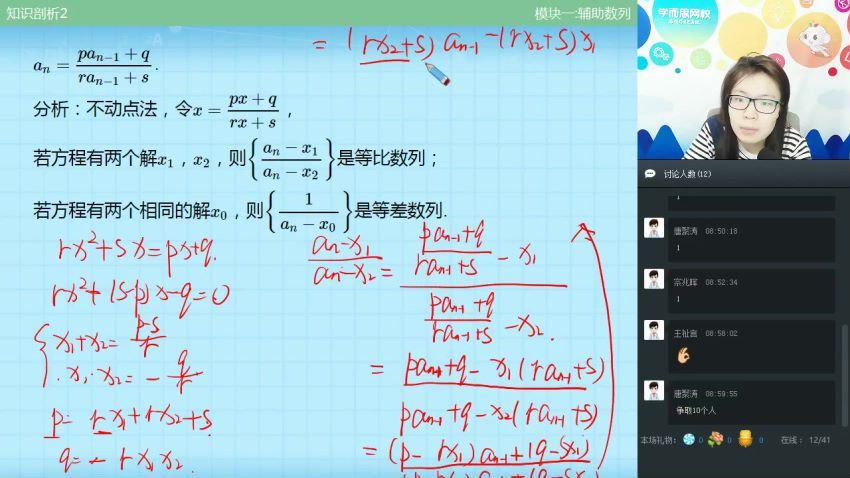 知识剖析2
模块一:辅助数列
学而思网校
= (rx₂+s) aₙ₋₁ -(rx₂+s)x₁
aₙ = (paₙ₋₁ + q)/(raₙ₋₁ + s).
分析：不动点法，令x = (px + q)/(rx + s)，
若方程有两个解x₁，x₂，则{(aₙ − x₁)/(aₙ − x₂)}是等比数列；
若方程有两个相同的解x₀，则{1/(aₙ − x₀)}是等差数列.
rx²+sx=px+q.
rx²+(s-p)x-q=0
x₁+x₂= (p-s)/r
x₁·x₂= - q/r
p= rx₁+rx₂+s
q= - rx₁x₂
(aₙ-x₁)/(aₙ-x₂) = ((paₙ₋₁+q)/(raₙ₋₁+s) - x₁)/((paₙ₋₁+q)/(raₙ₋₁+s) - x₂)
= (paₙ₋₁+q- x₁(raₙ₋₁+s))/(paₙ₋₁+q-x₂(raₙ₋₁+s))
= (p- rx₁)aₙ₋₁+(q-sx₁)
讨论人数(12)
1
唐梨涛 08:50:18
1
宗兆晖 08:52:34
1
王祉言 08:58:02
唐梨涛 08:59:55
争取10个人
本场礼物: 0 0 0 在线: 12/41